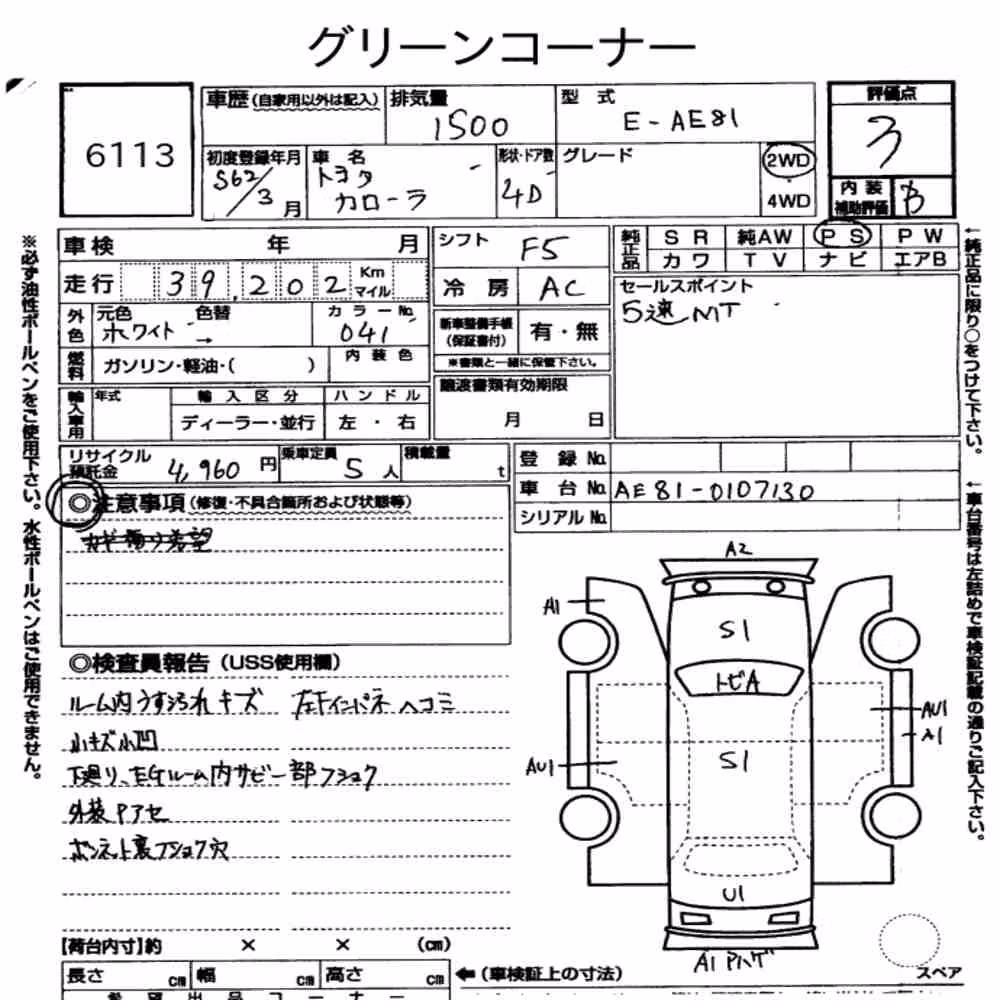 グリーンコーナー
6113
車歴(自家用以外は記入)
排気量
1500
型式
E-AE81
評価点
3
初度登録年月
S62/3月
車名
トヨタ
カローラ
形状・ドア数
4D
グレード
2WD
4WD
内装
補助評価
B
車検 年 月
シフト
F5
純正品
SR 純AW PS PW
カワ TV ナビ エアB
走行 39,202 Km マイル
冷房
AC
セールスポイント
5速MT
外色
元色 色替 カラーNo.
ホワイト → 041
新車整備手帳
(保証書付)
有・無
※書類と一緒に保管下さい。
燃料
ガソリン・軽油・( )
内装色
譲渡書類有効期限
月 日
輸入車用
年式 輸入区分 ハンドル
ディーラー・並行 左・右
リサイクル
預託金
4,960円
乗車定員
5人
積載量
t
登録No.
車台No. AE81-0107130
シリアルNo.
◎注意事項(修復・不具合箇所および状態等)
◎検査員報告(USS使用欄)
ルーム内うす汚れキズ 左Fインパネヘコミ
小キズ小凹
下廻り、EGルーム内サビ一部フショク
外装Pアセ
ボンネット裏フショク穴
A2
A1
S1
トビA
AU1
A1
S1
AU1
U1
A1 Pハゲ
スペア
【荷台内寸】約 × × (cm)
長さ cm 幅 cm 高さ cm
←(車検証上の寸法)
希望出品コーナー
※必ず油性ボールペンをご使用下さい。水性ボールペンはご使用できません。
←純正品に限り○をつけて下さい。
←車台番号は左詰めで車検証記載の通りご記入下さい。